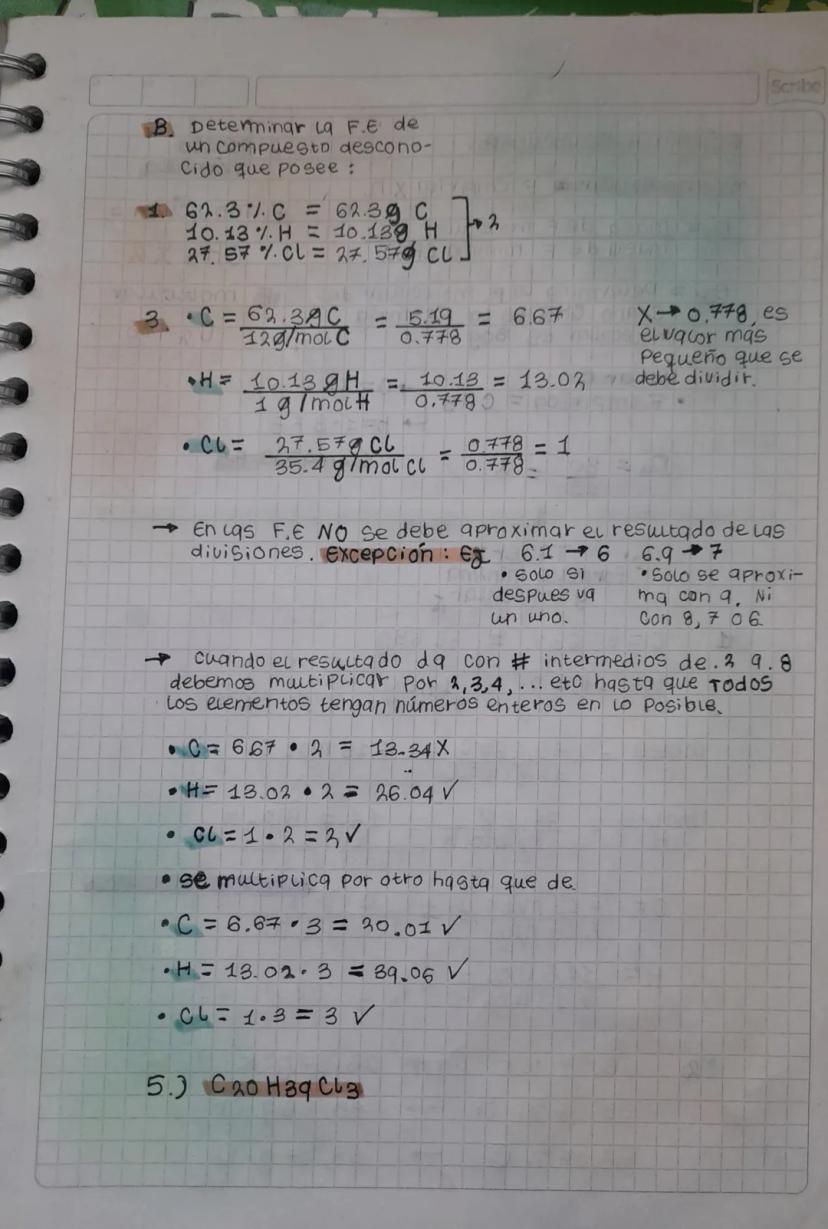 Scribe
B. Determinar la F.E de
un compuesto descono-
cido que posee:
1. 62.3% C = 62.3g C
10.13% H = 10.13g H
27.57% Cl = 27.57g Cl → 2
3. • C = 62.3g C / 12g/mol C = 5.19 / 0.778 = 6.67
X → 0.778, es
el valor más
pequeño que se
debe dividir.
• H = 10.13 g H / 1 g/mol H = 10.13 / 0.778 = 13.02
• Cl = 27.57g Cl / 35.4 g/mol Cl = 0.778 / 0.778 = 1
→ En las F.E NO se debe aproximar el resultado de las
divisiones. Excepción: Ej 6.1 → 6 6.9 → 7
• solo si
despues va
un uno.
• solo se aproxi-
ma con 9. Ni
con 8, 7 o 6
→ cuando el resultado da con # intermedios de .2 a .8
debemos multiplicar por 2,3,4, ... etc hasta que TODOS
los elementos tengan números enteros en lo posible.
• C = 6.67 • 2 = 13.34 X
• H = 13.02 • 2 = 26.04 ✓
• Cl = 1 • 2 = 2 ✓
• se multiplica por otro hasta que de
• C = 6.67 • 3 = 20.01 ✓
• H = 13.02 • 3 = 39.06 ✓
• Cl = 1 • 3 = 3 ✓
5.) C20 H39 Cl3